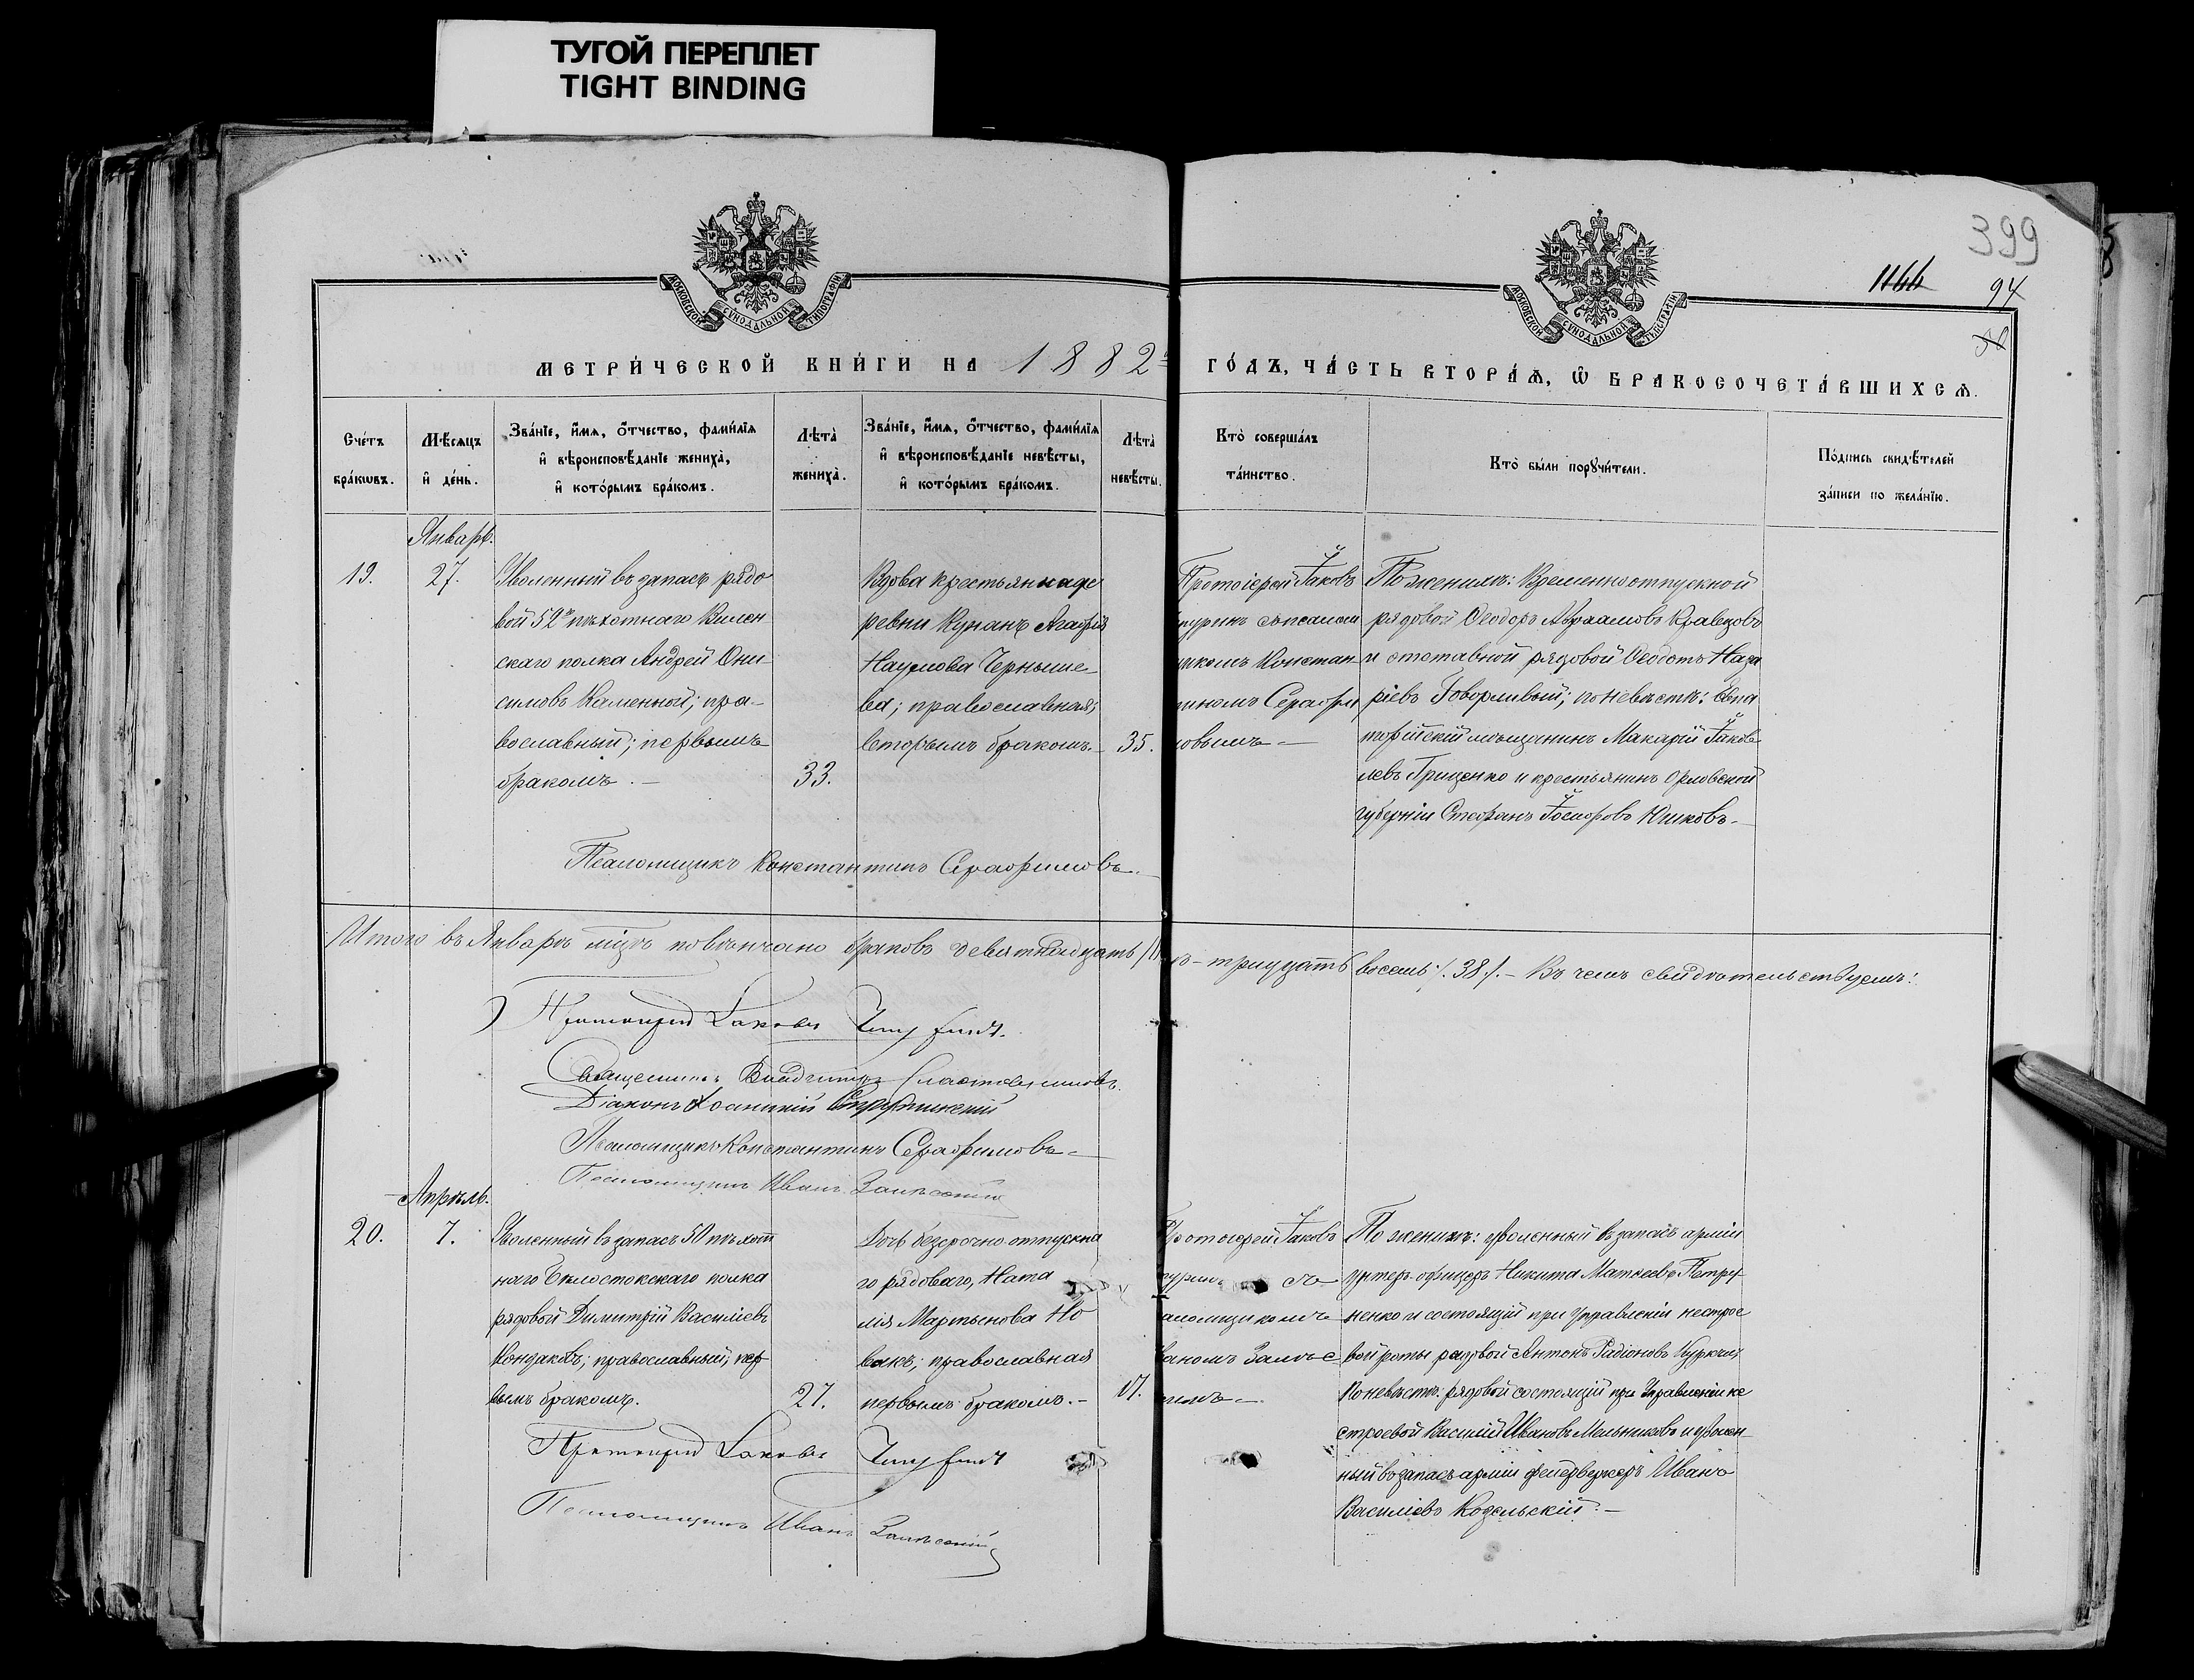 ТУГОЙ ПЕРЕПЛЕТ
TIGHT BINDING
399
1166
94
МОСКОВСКОЙ СѴНОДАЛЬНОЙ ТИПОГРАФІИ
МОСКОВСКОЙ СѴНОДАЛЬНОЙ ТИПОГРАФІИ
МЕТРИ́ЧЕСКОЙ КНИ́ГИ НА 1882й
ГО́ДЪ, ЧА́СТЬ ВТОРА́Ѧ, Ѡ БРАКОСОЧЕТА́ВШИХСѦ.
Сче́тъ бра́кѡвъ.
Мѣ́сяцъ и҆ де́нь.
Зва́нїе, и҆́мѧ, ѻ҆́тчество, фами́лїѧ
и҆ вѣроисповѣ́данїе жениха̀,
и҆ кото́рымъ бра́комъ.
Лѣта̀ жениха̀.
Зва́нїе, и҆́мѧ, ѻ҆́тчество, фами́лїѧ
и҆ вѣроисповѣ́данїе невѣ́сты,
и҆ кото́рымъ бра́комъ.
Лѣта̀ невѣ́сты.
Кто̀ соверша́лъ
та́инство.
Кто̀ бы́ли порꙋчи́тели.
По́дпись свидѣ́телей
за́писи по жела́нїю.
Январь.
19.
27.
Уволенный въ запасъ рядо
вой 52го пѣхотнаго Вилен
скаго полка Андрей Они
симовъ Каменной; пра-
вославный; первымъ
бракомъ. —
33.
Вдова крестьянка де
ревни Куранъ Агафія
Наумова Черныше-
ва; православная;
вторымъ бракомъ. —
35.
Протоіерей Іаковъ
туринъ съ псалом
щикомъ Констан
тиномъ Серафи
мовымъ —
По женихѣ: Временно отпускной
рядовой Ѳеодоръ Авраамовъ Кравцовъ
и отставной рядовой Ѳеодотъ Наза
ріевъ Говорливый; по невѣстѣ: Евпа
торійскій мѣщанинъ Макарій Іаков
левъ Гриценко и крестьянинъ Орловской
губерніи Стефанъ Іосифовъ Юшковъ. —
Псаломщикъ Константинъ Серафимовъ. —
Итого въ Январѣ мцѣ повѣнчано браковъ девятнадцать
тридцать восемь /. 38 /. — Въ чемъ свидѣтельствуемъ:
Протоіерей Іаковъ
Священникъ Владиміръ
Діаконъ Іоанникій
Псаломщикъ Константинъ Серафимовъ —
Псаломщикъ Иванъ Залѣсскій
Апрѣль.
20.
7.
Уволенный въ запасъ 50 пѣхот
наго Бѣлостокскаго полка
рядовой Димитрій Василіевъ
Кондаковъ; православный, пер
вымъ бракомъ.
27.
Дочь безсрочно-отпускна
го рядоваго, Ната
лія Мартынова Но
вакъ; православная
первымъ бракомъ. —
17.
Протоіерей Іаковъ
туринъ съ
псаломщикомъ
Иваномъ Залѣс
скимъ —
По женихѣ: уволенный въ запасъ арміи
унтеръ-офицеръ Никита Матѳеевъ Петру
ненко и состоящій при Управленіи нестрое
вой роты рядовой Антонъ Радіоновъ
По невѣстѣ: рядовой состоящій при Управленіи не
строевой Василій Ивановъ Мельниковъ и уволен
ный въ запасъ арміи фейерверкеръ Иванъ
Василіевъ Козельскій. —
Протоіерей Іаковъ
Псаломщикъ Иванъ Залѣсскій